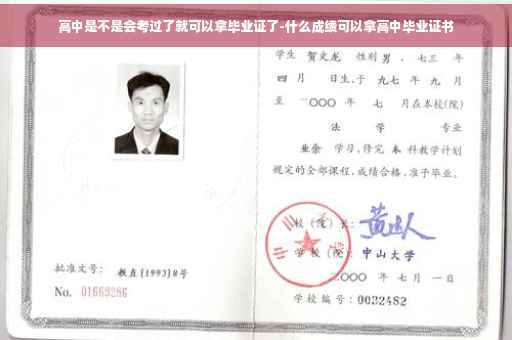 高中是不是会考过了就可以拿毕业证了-什么成绩可以拿高中毕业证书
学生 贺文龙 性别 男、七三 年
四 月 日生,于 九七 年 九 月
至 二〇〇〇 年 七 月在本校(院)
法 学 专业
业余 学习,修完 本 科教学计划
规定的全部课程,成绩合格,准予毕业。
校(院)长:
学校(院): 中山大学
二〇〇〇 年 七 月 一 日
学校编号: 0032482
批准文号: 教直[1993]8号
No. 01669286